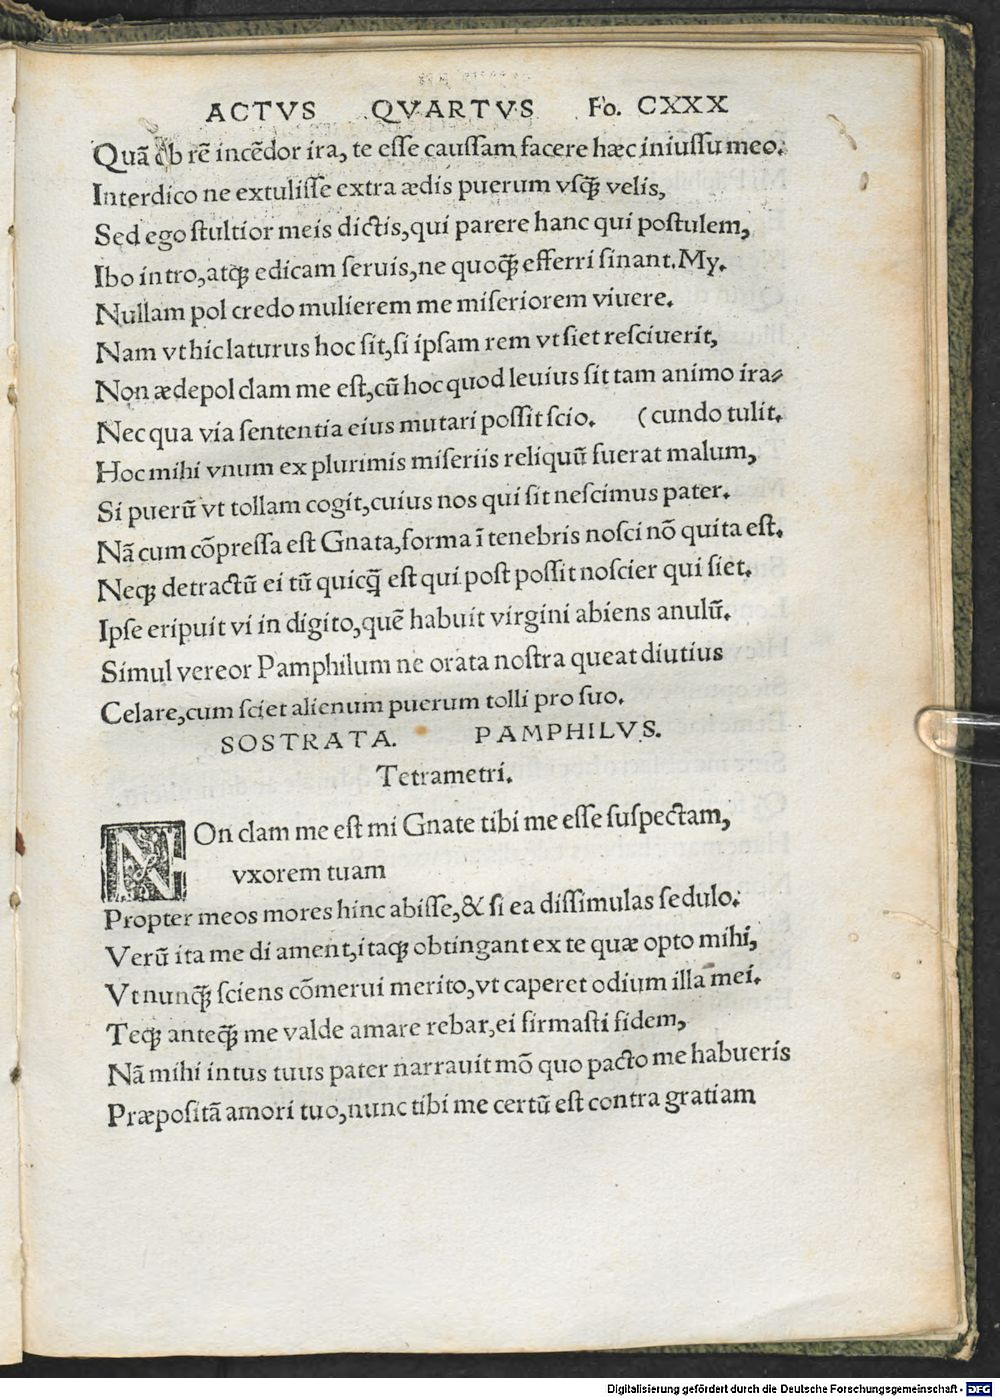 ACTVS QVARTVS Fo. CXXX
Quā ob rē incēdor ira, te esse caussam facere hæc iniussu meo.
Interdico ne extulisse extra ædis puerum vsq̃ velis,
Sed ego stultior meis dictis, qui parere hanc qui postulem,
Ibo intro, atq; edicam seruis, ne quoq̃ efferri sinant. My.
Nullam pol credo mulierem me miseriorem viuere.
Nam vt hic laturus hoc sit, si ipsam rem vt siet resciuerit,
Non ædepol clam me est, cū hoc quod leuius sit tam animo ira⸗
Nec qua via sententia eius mutari possit scio. (cundo tulit.
Hoc mihi vnum ex plurimis miseriis reliquū fuerat malum,
Si puerū vt tollam cogit, cuius nos qui sit nescimus pater.
Nā cum cōpressa est Gnata, forma ī tenebris nosci nō quita est.
Neq; detractū ei tū quicq̃ est qui post possit noscier qui siet.
Ipse eripuit vi in digito, quē habuit virgini abiens anulū.
Simul vereor Pamphilum ne orata nostra queat diutius
Celare, cum sciet alienum puerum tolli pro suo.
SOSTRATA. PAMPHILVS.
Tetrametri.
NOn clam me est mi Gnate tibi me esse suspectam,
vxorem tuam
Propter meos mores hinc abisse, & si ea dissimulas sedulo.
Verū ita me di ament, itaq; obtingant ex te quæ opto mihi,
Vt nunq̃ sciens cōmerui merito, vt caperet odium illa mei.
Teq; anteq̃ me valde amare rebar, ei firmasti fidem,
Nā mihi intus tuus pater narrauit mō quo pacto me habueris
Præpositā amori tuo, nunc tibi me certū est contra gratiam
Digitalisierung gefördert durch die Deutsche Forschungsgemeinschaft - DFG